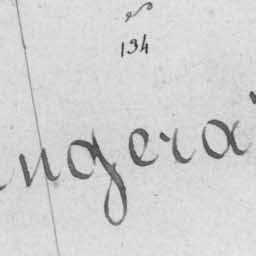 134
ngera